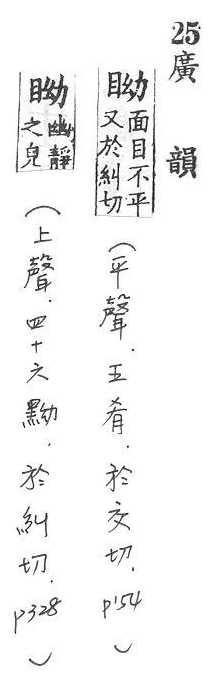 25
廣韻
眑
面目不平
又於糾切
（平聲．五肴．於交切．p154）
眑
幽靜
之皃
（上聲．四十六黝．於糾切．p328）